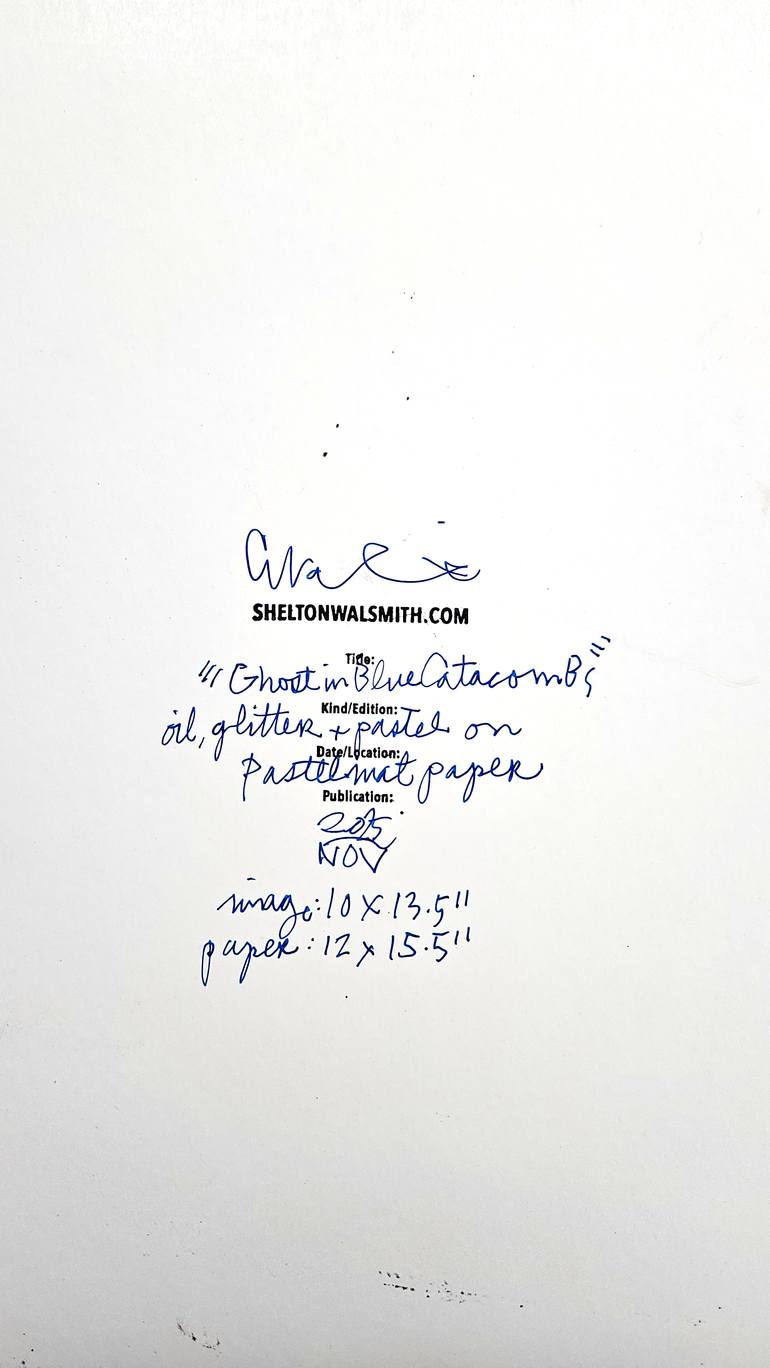 SHELTONWALSMITH.COM
Title:
"Ghost in Blue CatacomBs"
Kind/Edition:
oil, glitter + pastel on
Date/Location:
Pastelmat paper
Publication:
NOV
image: 10 x 13.5"
paper: 12 x 15.5"